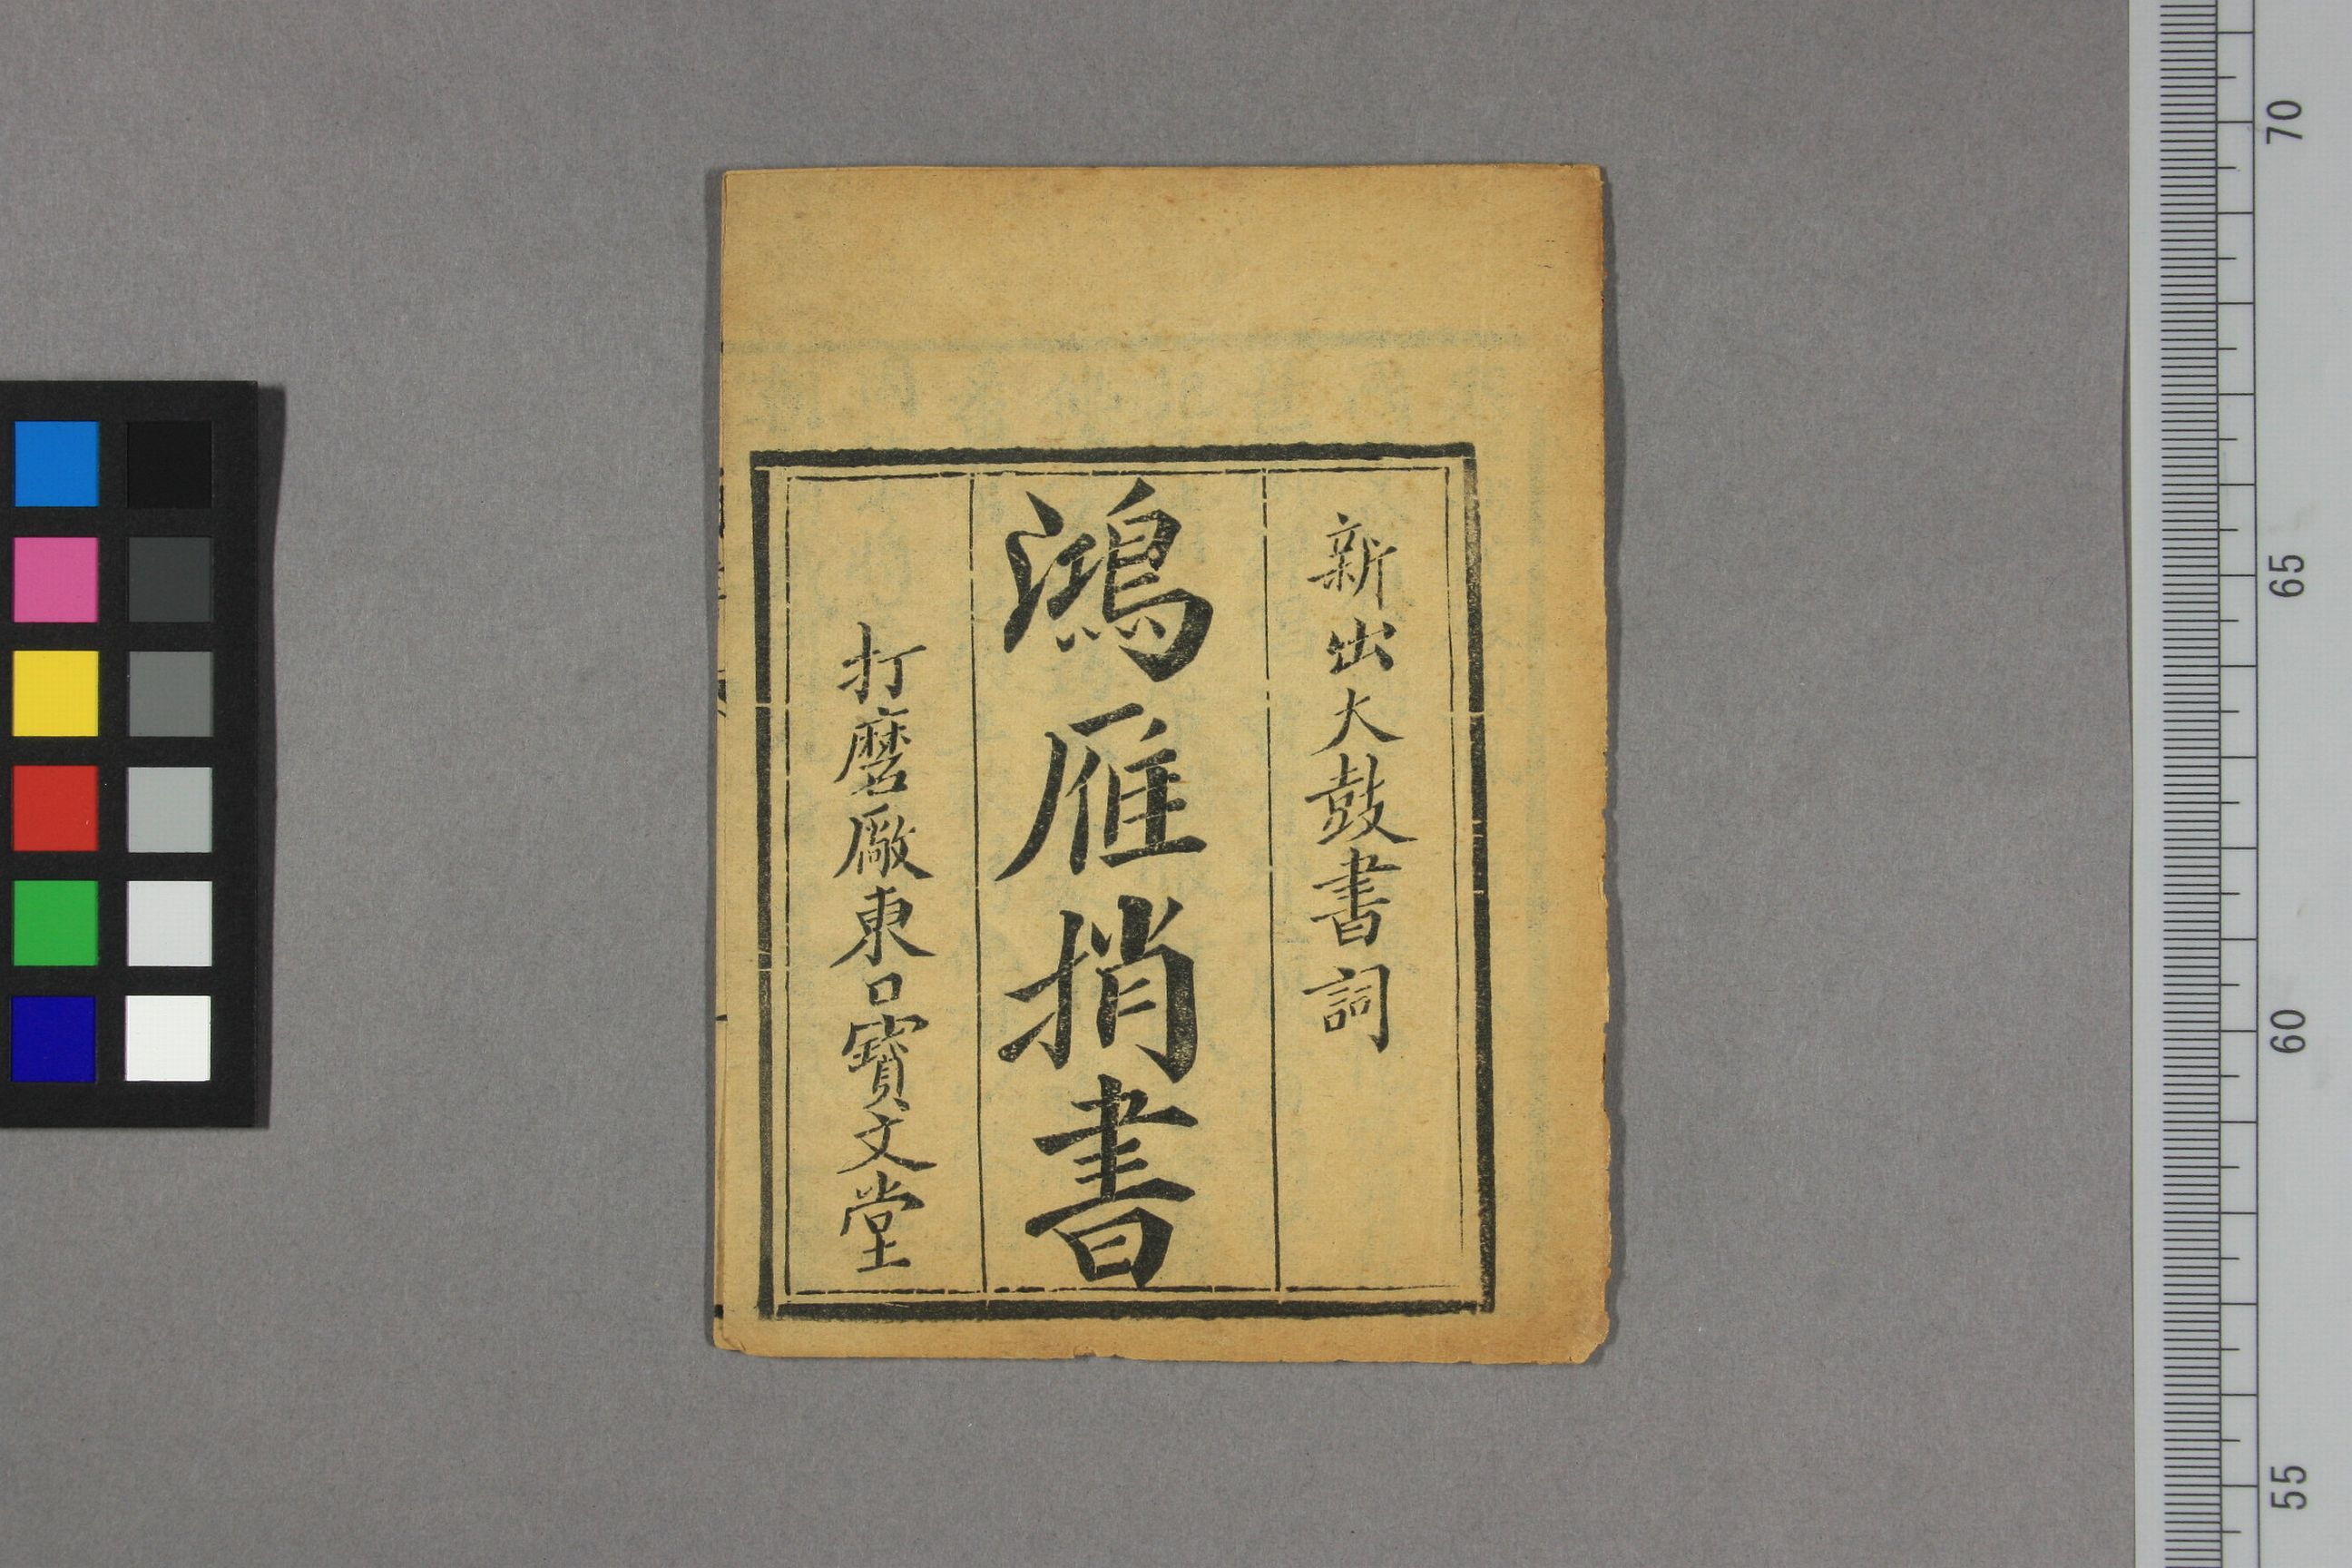 新出大鼓書詞
鴻雁捎書
打磨廠東口寳文堂
70
65
60
55